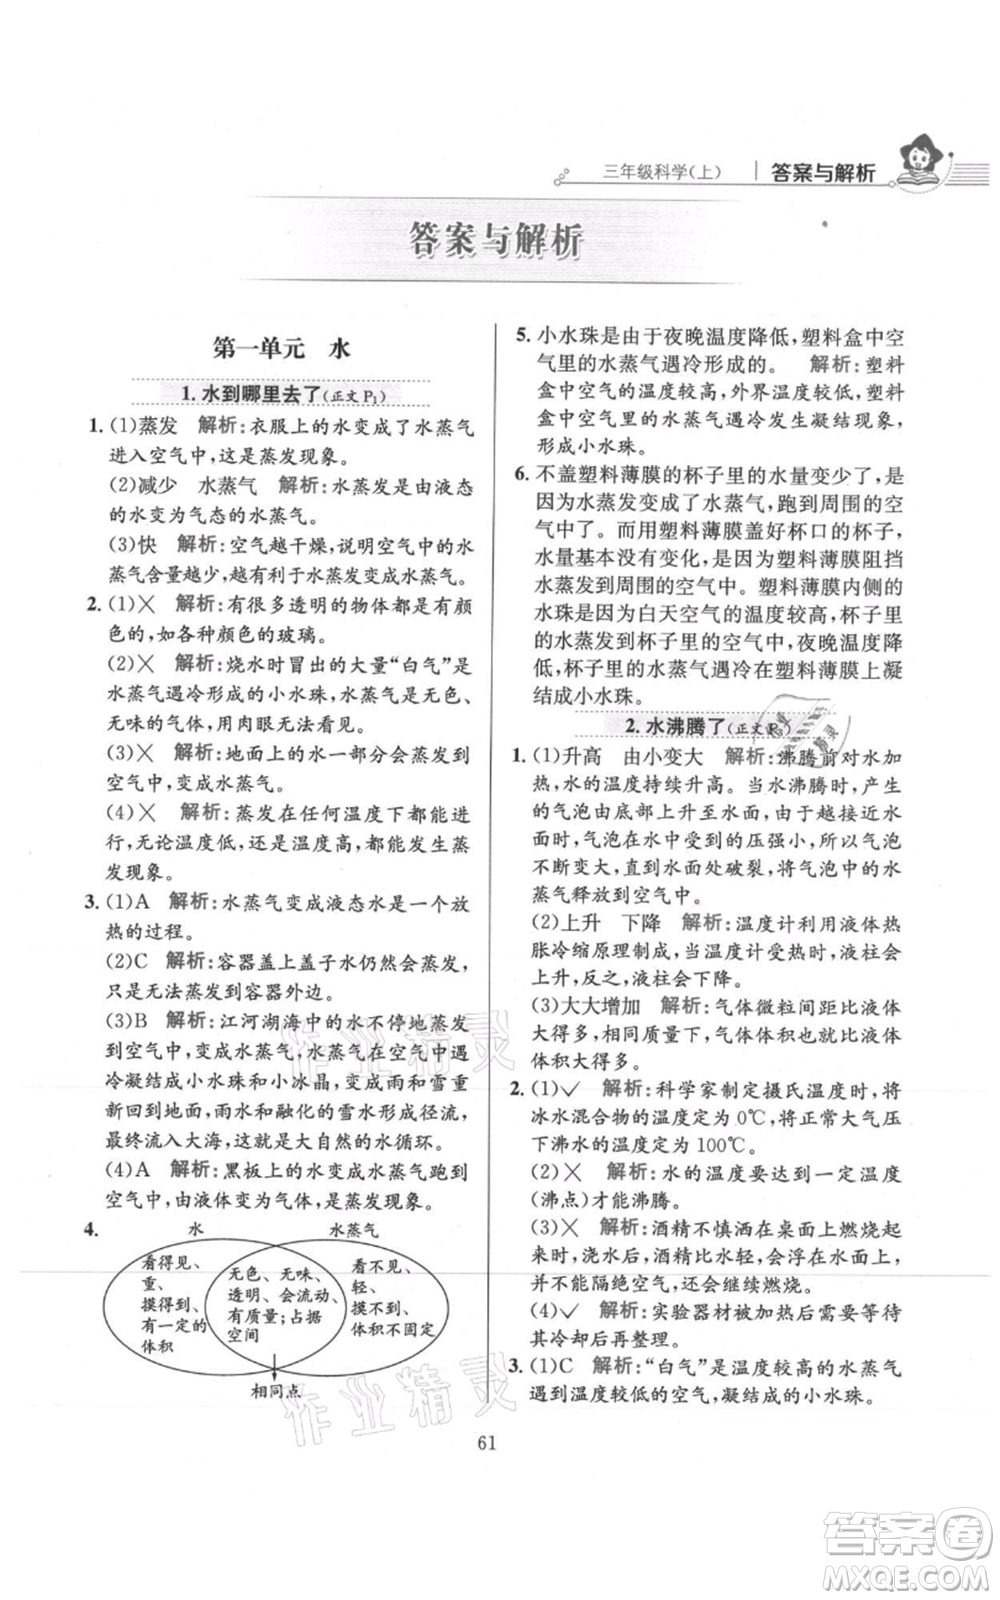 三年级科学(上) 答案与解析
答案与解析
第一单元 水
1.水到哪里去了(正文P₁)
1. (1)蒸发 解析:衣服上的水变成了水蒸气
进入空气中,这是蒸发现象。
(2)减少 水蒸气 解析:由液态
的水变为气态的水蒸气。
(3)快 解析:空气越干燥,说明空气中的水
蒸气含量越少,越有利于水蒸发变成水蒸气。
2. (1)× 解析:有很多透明的物体都是有颜
色的,如各种颜色的玻璃。
(2)× 解析:烧水时冒出的大量“白气”是
水蒸气遇冷形成的小水珠,水蒸气是无色、
无味的气体,用肉眼无法看见。
(3)× 解析:地面上的水一部分会蒸发到
空气中,变成水蒸气。
(4)× 解析:蒸发在任何温度下都能进
行,无论温度低,还是温度高,都能发生蒸
发现象。
3. (1)A 解析:水蒸气变成液态水是一个放
热的过程。
(2)C 解析:容器盖上盖子水仍然会蒸发,
只是无法蒸发到容器外边。
(3)B 解析:江河湖海中的水不停地蒸发
到空气中,变成水蒸气,水蒸气在空气中遇
冷凝结成小水珠和小冰晶,变成雨和雪重
新回到地面,雨水和融化的雪水形成径流,
最终流入大海,这就是大自然的水循环。
(4)A 解析:黑板上的水变成水蒸气跑到
空气中,由液体变为气体,是蒸发现象。
4. 水 水蒸气
看得见、
重、
摸得到、
有一定的
体积
无色、无味、
透明、会流动、
有质量;占据
空间
看不见、
轻、
摸不到、
体积不固定
相同点
5. 小水珠是由于夜晚温度降低,塑料盒中空
气里的水蒸气遇冷形成的。 解析:塑料
盒中空气的温度较高,外界温度较低,塑料
盒中空气里的水蒸气遇冷发生凝结现象,
形成小水珠。
6. 不盖塑料薄膜的杯子里的水量变少了,是
因为水蒸发变成了水蒸气,跑到周围的空
气中了。而用塑料薄膜盖好杯口的杯子,
水量基本没有变化,是因为塑料薄膜阻挡
水蒸发到周围的空气中。塑料薄膜内侧的
水珠是因为白天空气的温度较高,杯子里
的水蒸发到杯子里的空气中,夜晚温度降
低,杯子里的水蒸气遇冷在塑料薄膜上凝
结成小水珠。
2.水沸腾了(正文P₂)
1. (1)升高 由小变大 解析:沸腾前对水加
热,水的温度持续升高。当水沸腾时,产生
的气泡由底部上升至水面,由于越接近水
面时,气泡在水中受到的压强小,所以气泡
不断变大,直到水面处破裂,将气泡中的水
蒸气释放到空气中。
(2)上升 下降 解析:温度计利用液体热
胀冷缩原理制成,当温度计受热时,液柱会
上升,反之,液柱会下降。
(3)大大增加 解析:气体微粒间距比液体
大得多,相同质量下,气体体积也就比液体
体积大得多。
2. (1)✓ 解析:科学家制定摄氏温度时,将
冰水混合物的温度定为0℃,将正常大气压
下沸水的温度定为100℃。
(2)× 解析:水的温度要达到一定温度
(沸点)才能沸腾。
(3)× 解析:酒精不慎洒在桌面上燃烧起
来时,浇水后,酒精比水轻,会浮在水面上,
并不能隔绝空气,还会继续燃烧。
(4)✓ 解析:实验器材被加热后需要等待
其冷却后再整理。
3. (1)C 解析:“白气”是温度较高的水蒸气
遇到温度较低的空气,凝结成的小水珠。
61
作业精灵
作业精灵
答案卷
MXQE.COM